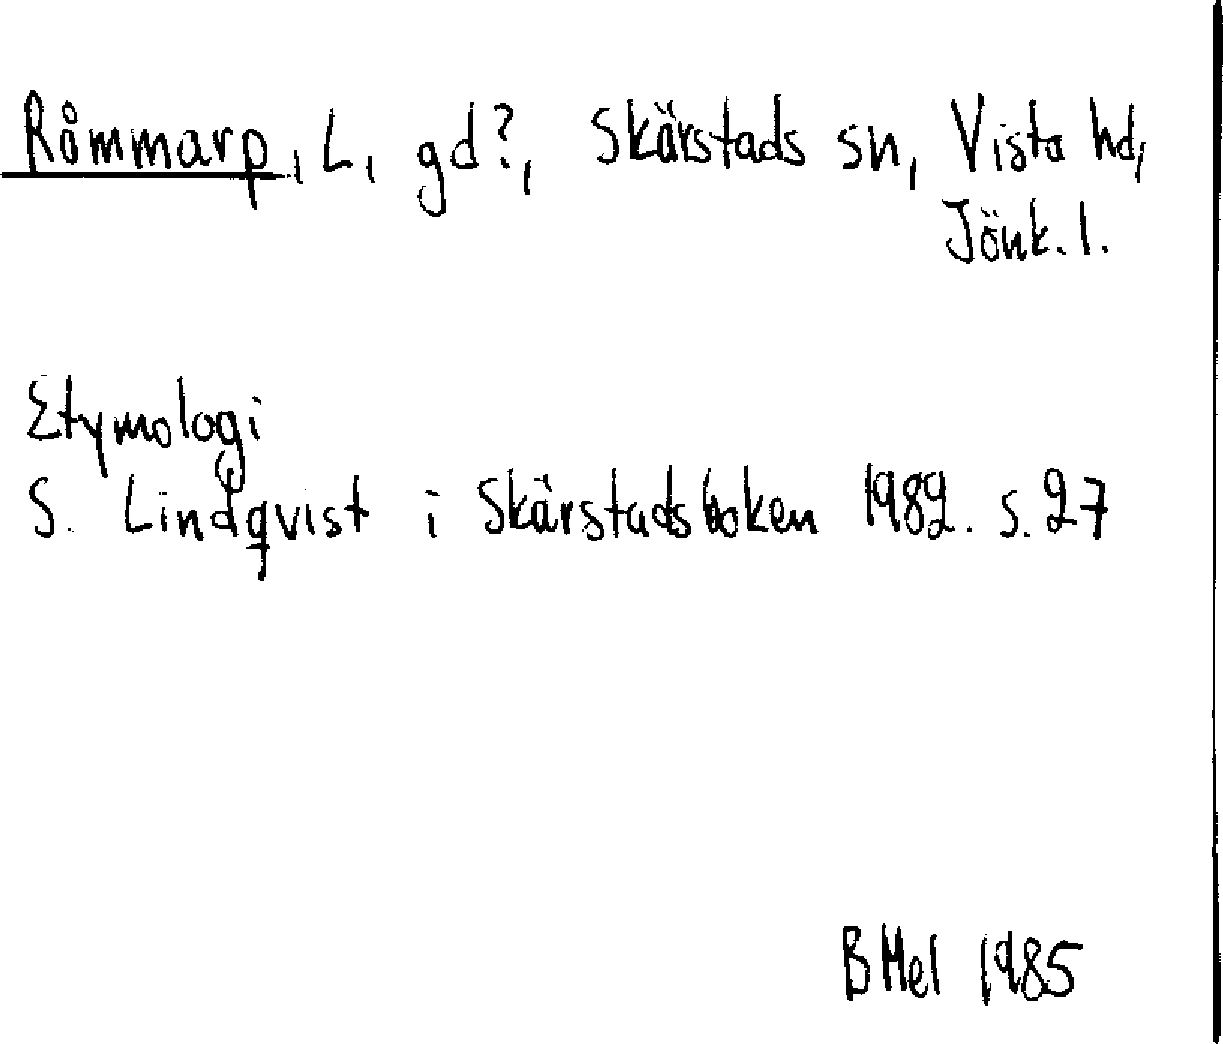 Råmmarp, L, gd?, Skärstads sn, Vista hd,
Jönk. l.
Etymologi
S. Lindqvist i Skärstadsboken 1982. s. 27
BMel 1985